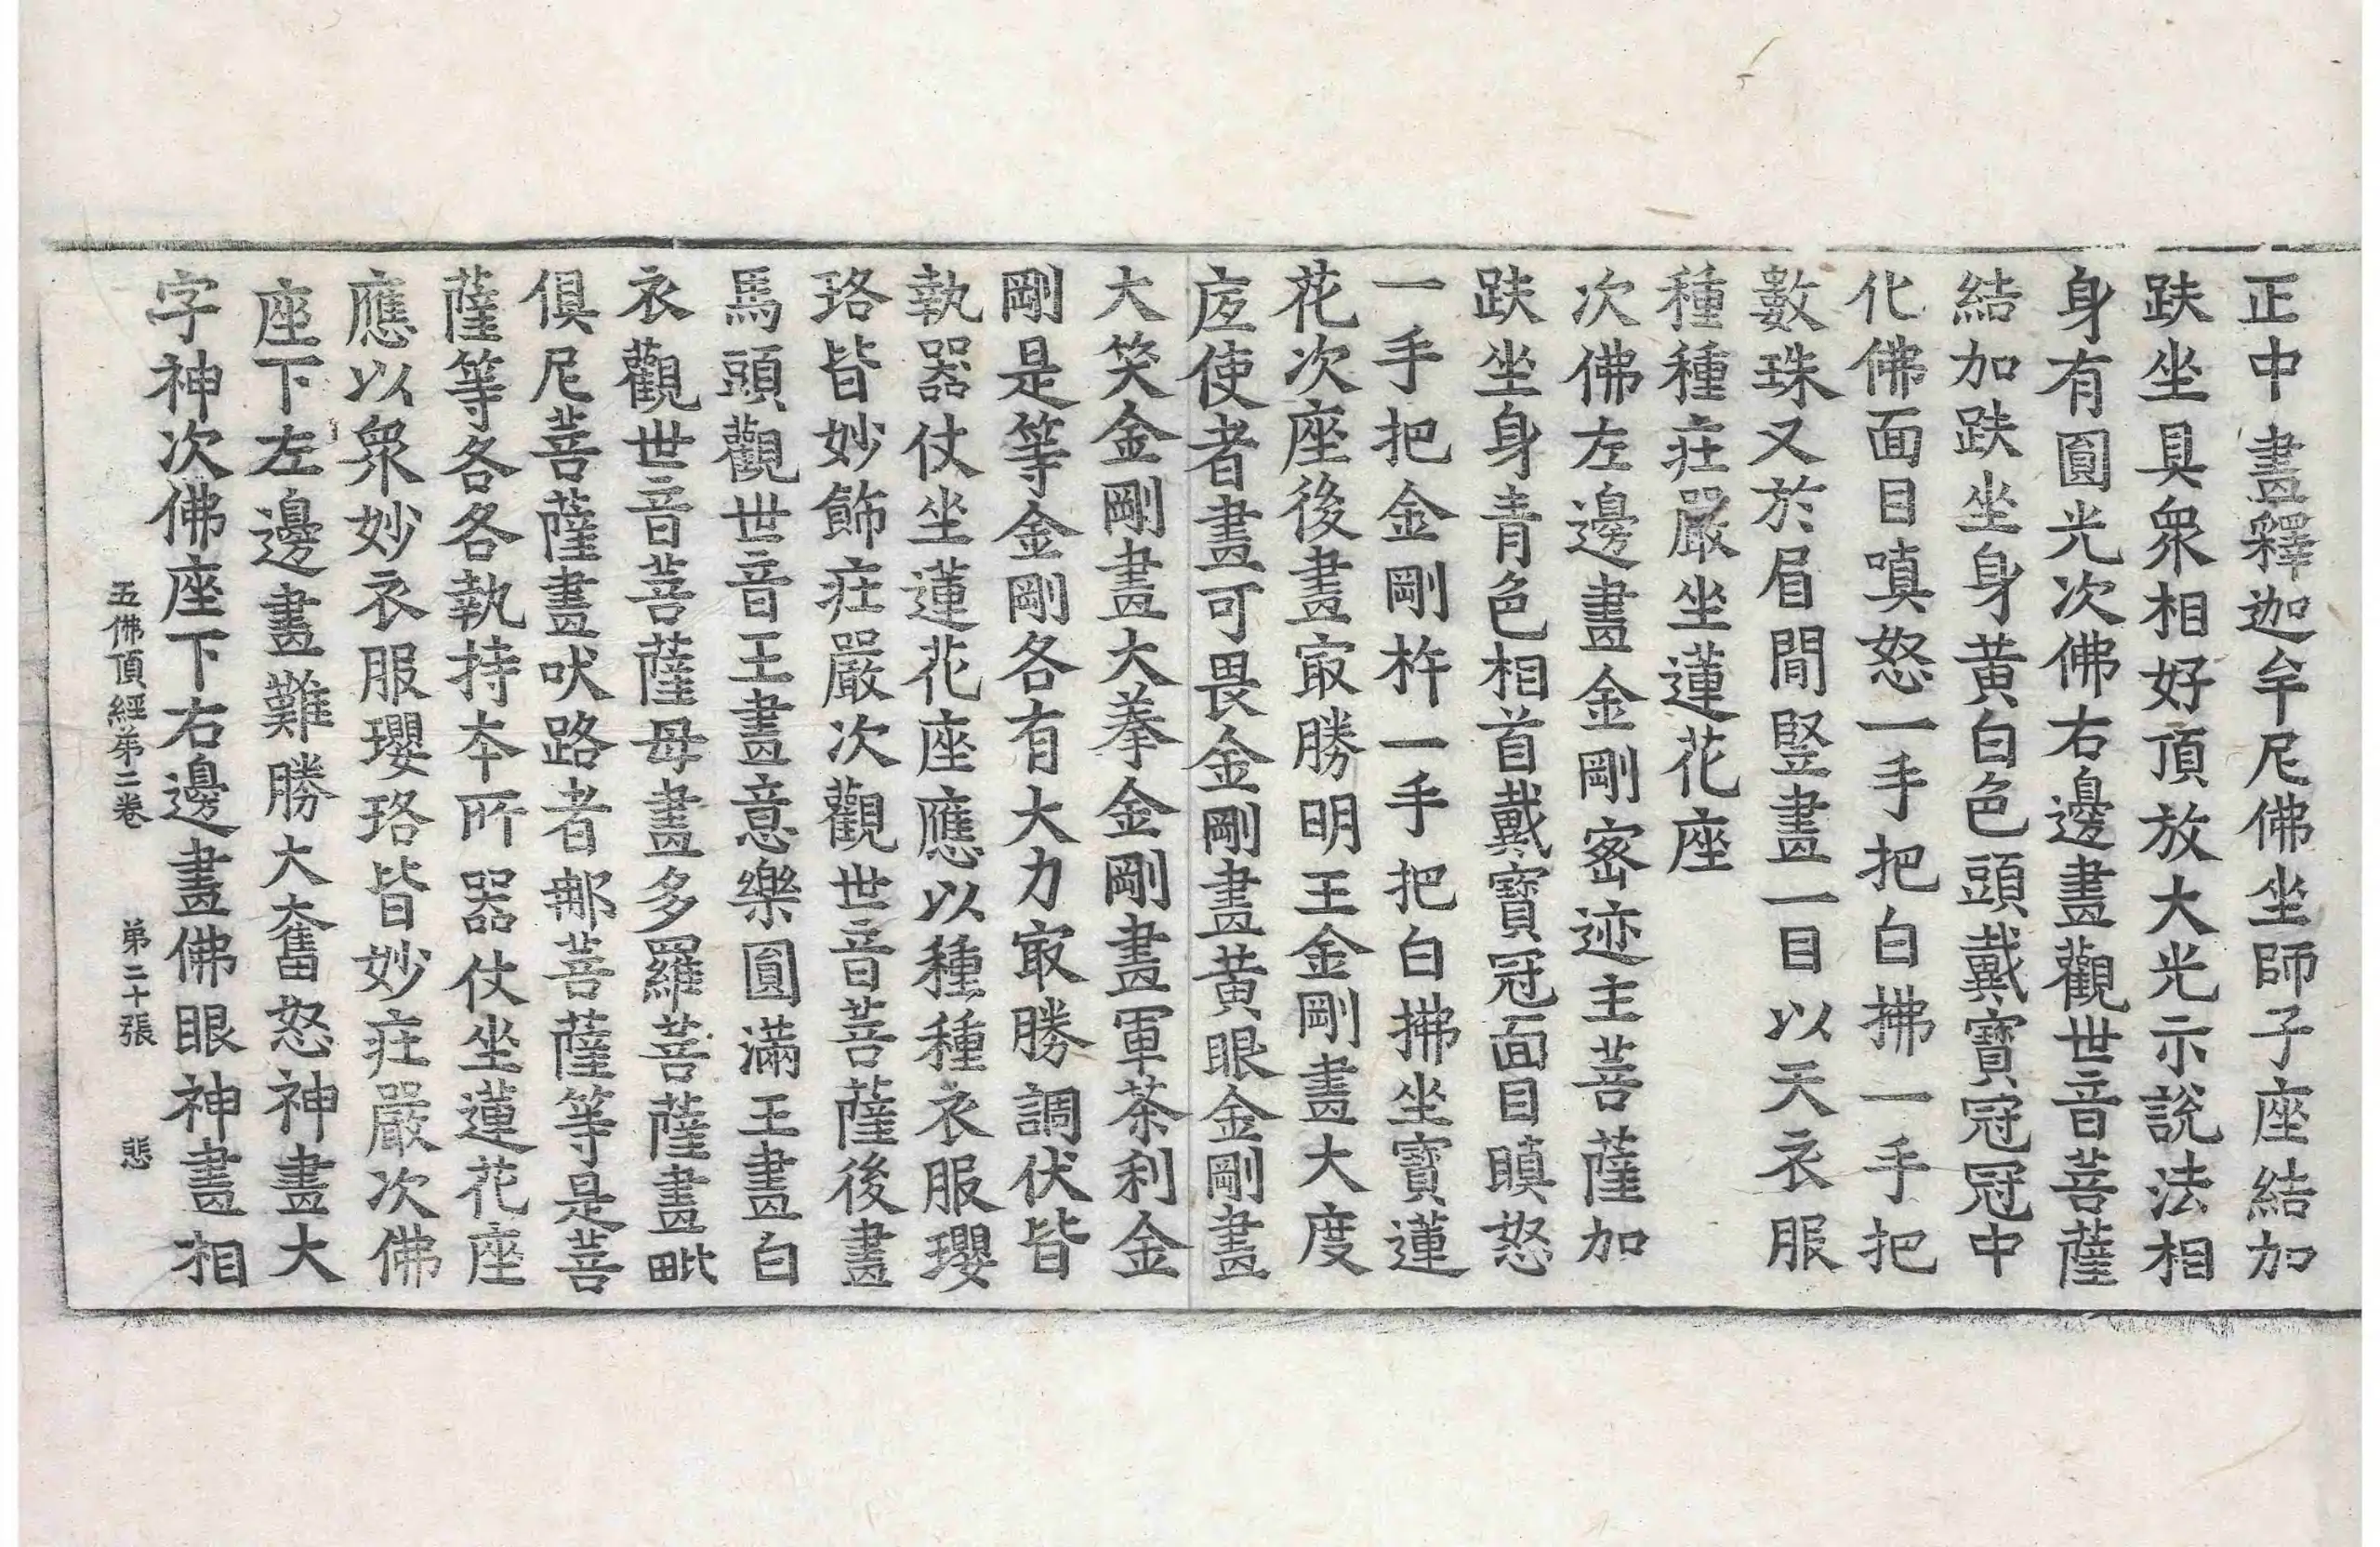 正中畫釋迦牟尼佛坐師子座結加
趺坐具衆相好頂放大光示說法相
身有圓光次佛右邊畫觀世音菩薩
結加趺坐身黃白色頭戴寶冠冠中
化佛面目嗔怒一手把白拂一手把
數珠又於眉間竪畫一目以天衣服
種種莊嚴坐蓮花座
次佛左邊畫金剛密迹主菩薩加
趺坐身青色相首戴寶冠面目瞋怒
一手把金剛杵一手把白拂坐寶蓮
花次座後畫㝡勝明王金剛畫大度
底使者畫可畏金剛畫黃眼金剛畫
大笑金剛畫大拳金剛畫軍茶利金
剛是等金剛各有大力㝡勝調伏皆
執器仗坐蓮花座應以種種衣服瓔
珞皆妙飾莊嚴次觀世音菩薩後畫
馬頭觀世音王畫意樂圓滿王畫白
衣觀世音菩薩母畫多羅菩薩畫毗
俱尼菩薩畫吠路者那菩薩等是菩
薩等各各執持本所器仗坐蓮花座
應以衆妙衣服瓔珞皆妙莊嚴次佛
座下左邊畫難勝大奮怒神畫大
字神次佛座下右邊畫佛眼神畫相
五佛頂經第二卷 第二十張 悲